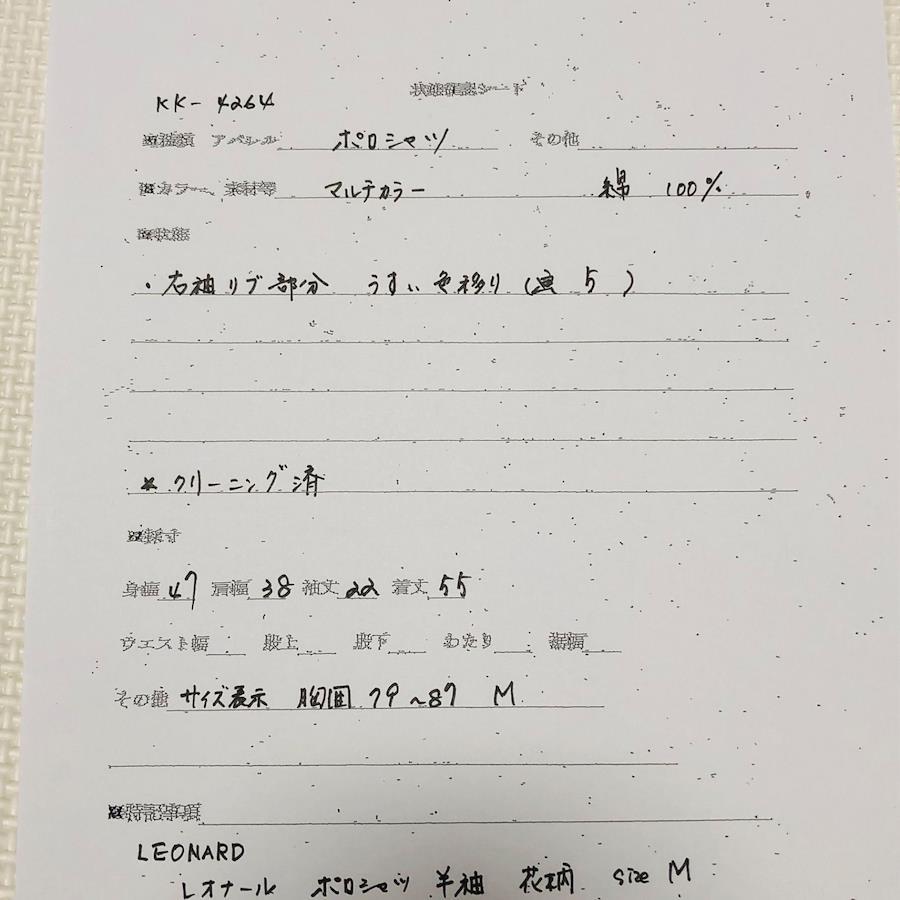 状態確認シート
KK-4264
■種類 アパレル ポロシャツ その他
■カラー、素材等 マルチカラー 綿 100%
■状態
・右袖リブ部分 うすい色移り (画 5 )
* クリーニング済
■採寸
身幅 47 肩幅 38 袖丈 22 着丈 55
ウエスト幅 股上 股下 わたり 裾幅
その他 サイズ表示 胸囲 79~87 M
■特記事項
LEONARD
レオナール ポロシャツ 半袖 花柄 size M